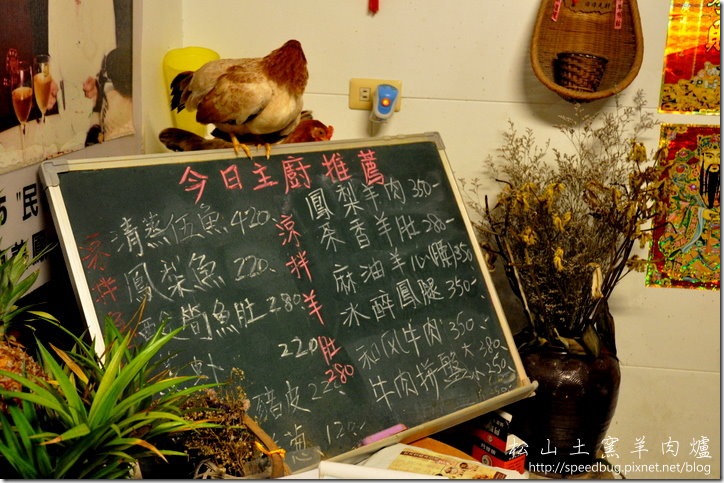 今日主廚推薦
清蒸伍魚 420
鳳梨魚 220
筍魚肚 280
220
豬皮
滷 120
涼拌羊肚 280
鳳梨羊肉 350
茶香羊肚 280
麻油羊心 350
冰醉鳳腿 350
和風牛肉 350
牛肉拼盤 大 380
小 250
松山土窯羊肉爐
http://speedbug.pixnet.net/blog